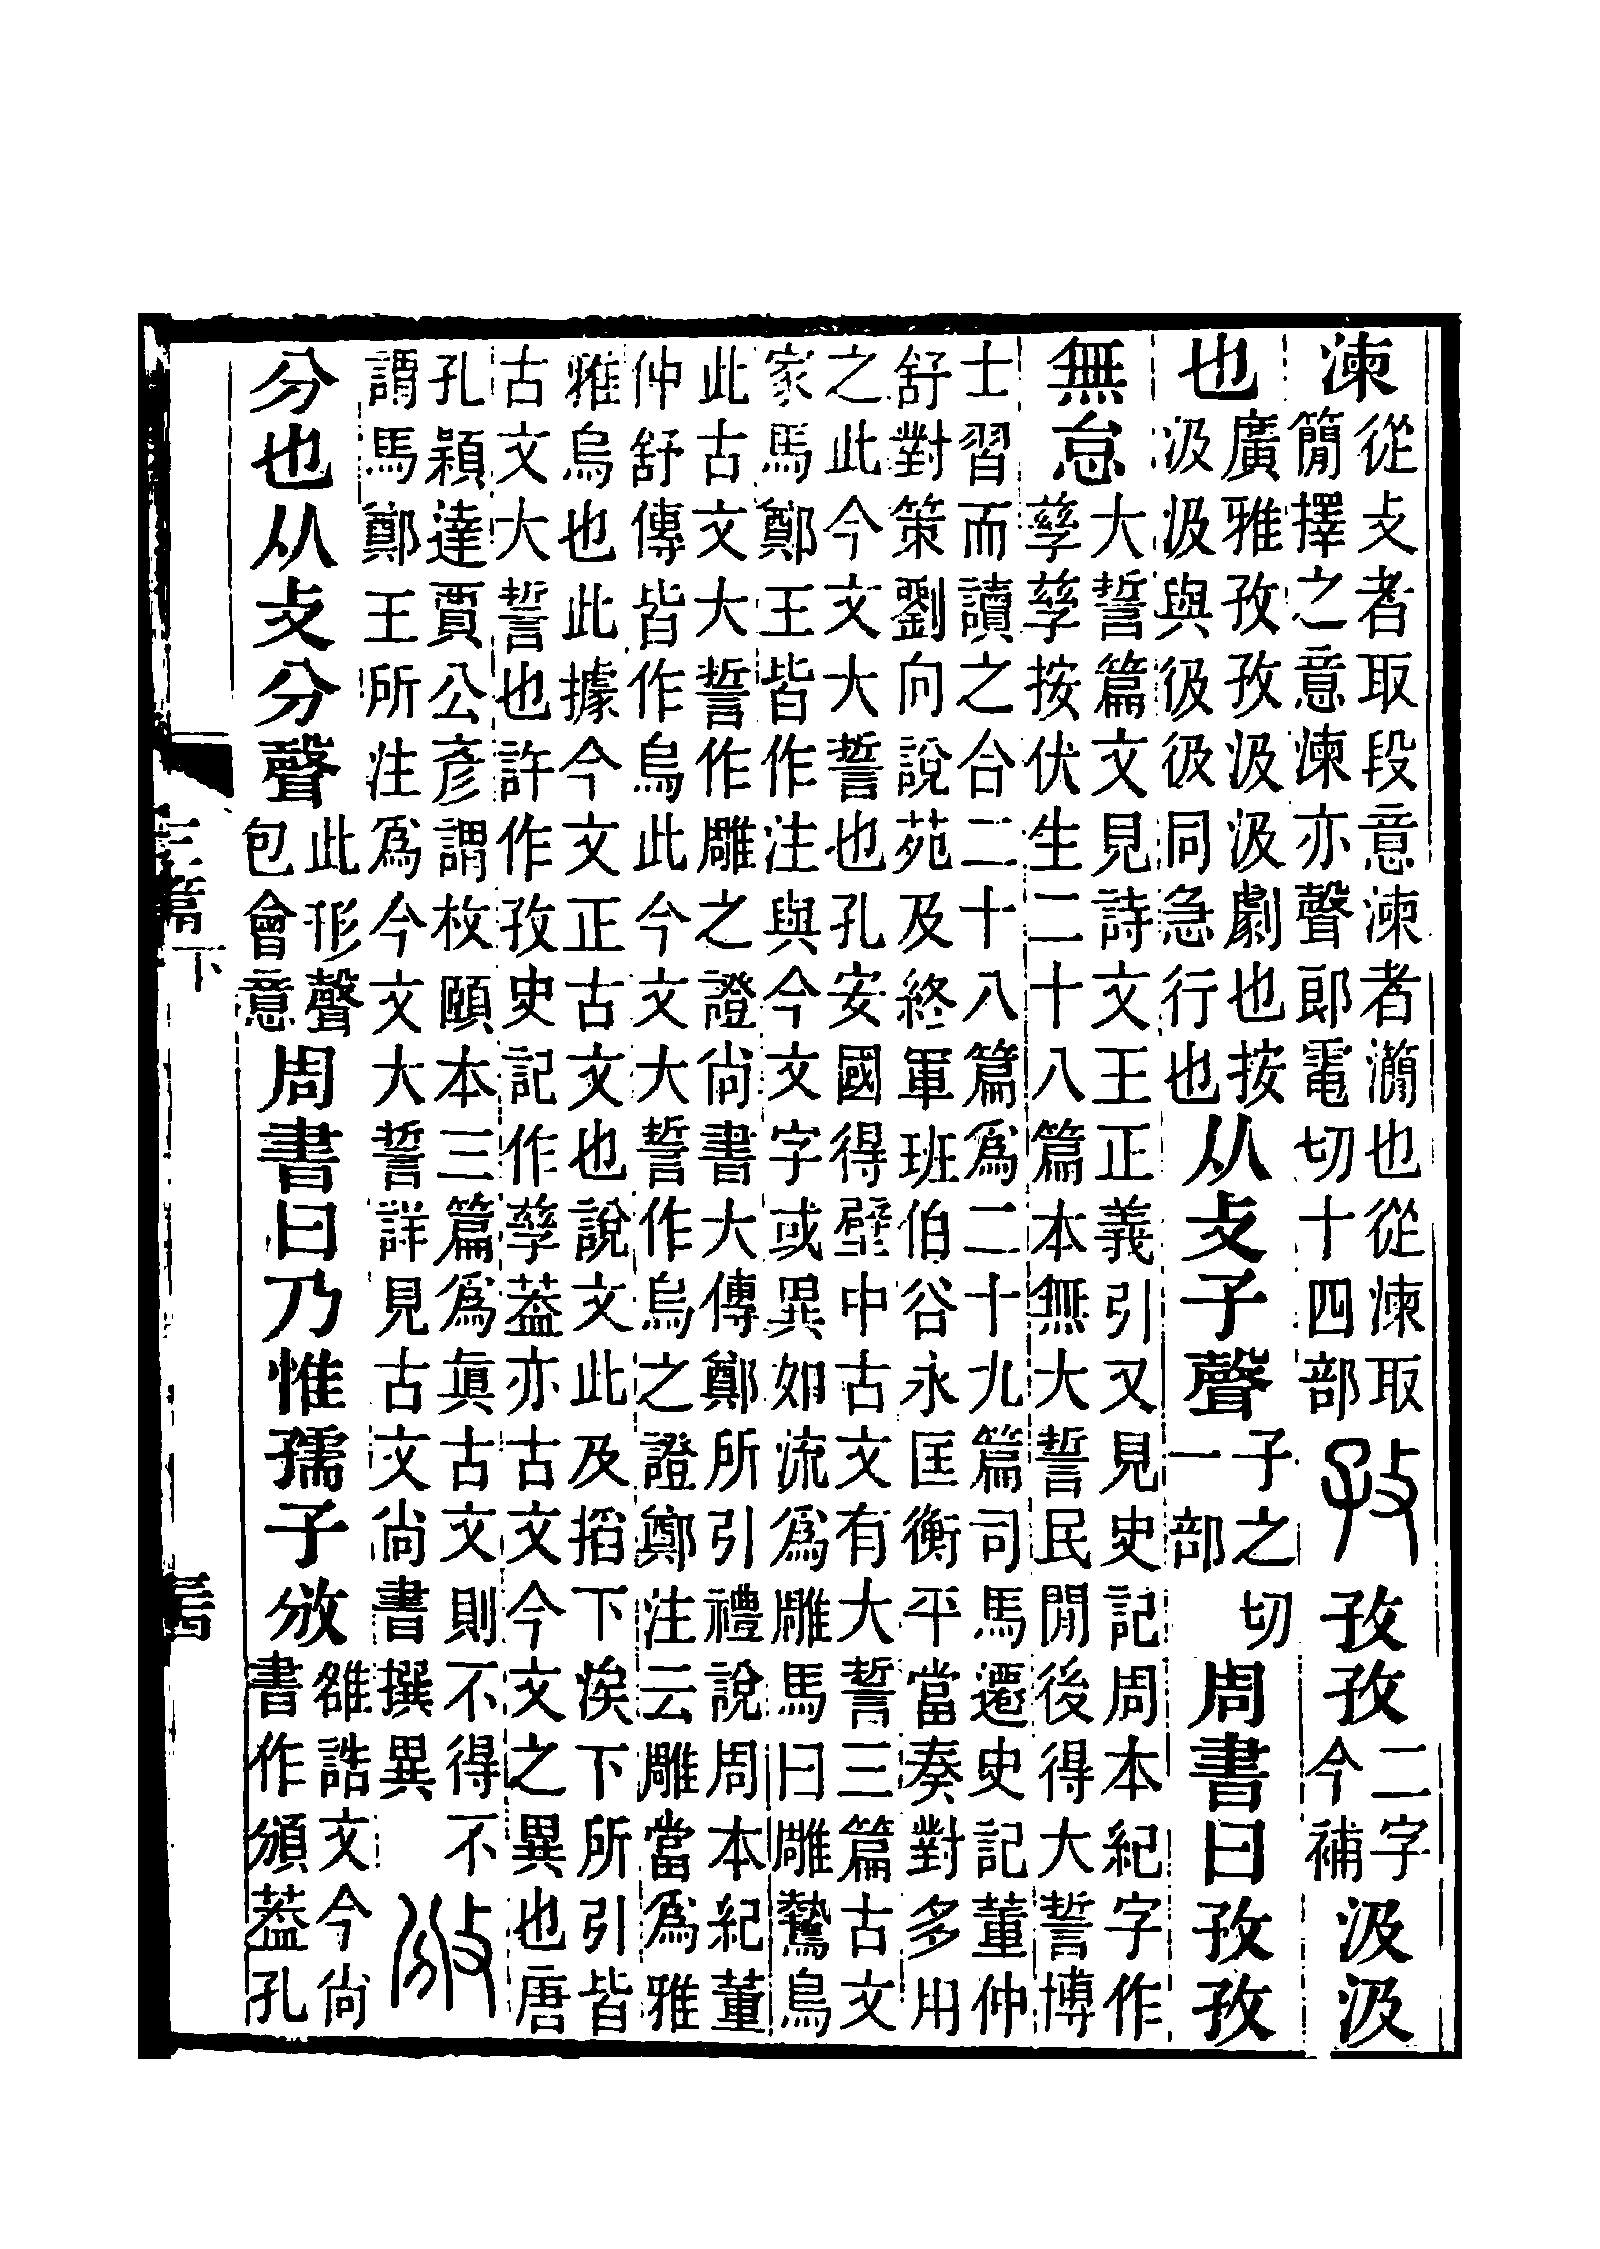 湅從攴者取段意湅者㶕也從湅取簡擇之意湅亦聲郎電切十四部孜孜孜二字今補汲汲
也廣雅孜孜汲汲劇也按汲汲與彶彶同急行也从攴子聲子之切一部周書曰孜孜
無怠大誓篇文見詩文王正義引又見史記周本紀字作孳孳按伏生二十八篇本無大誓民閒後得大誓博
士習而讀之合二十八篇爲二十九篇司馬遷史記董仲舒對策劉向說苑及終軍班伯谷永匡衡平當奏對多用
之此今文大誓也孔安國得壁中古文有大誓三篇古文家馬鄭王皆作注與今文字或異如流爲雕馬曰雕鷙鳥
此古文大誓作雕之證尚書大傳鄭所引禮說周本紀董仲舒傳皆作烏此今文大誓作烏之證鄭注云雕當爲雅
雅烏也此據今文正古文也說文此及搯下涘下所引皆古文大誓也許作孜史記作孳葢亦古文今文之異也唐
孔穎達賈公彥謂枚頤本三篇爲眞古文則不得不謂馬鄭王所注爲今文大誓詳見古文尚書撰異攽
分也从攴分聲此形聲包會意周書曰乃惟孺子攽雒誥文今尚書作頒葢孔
三篇下